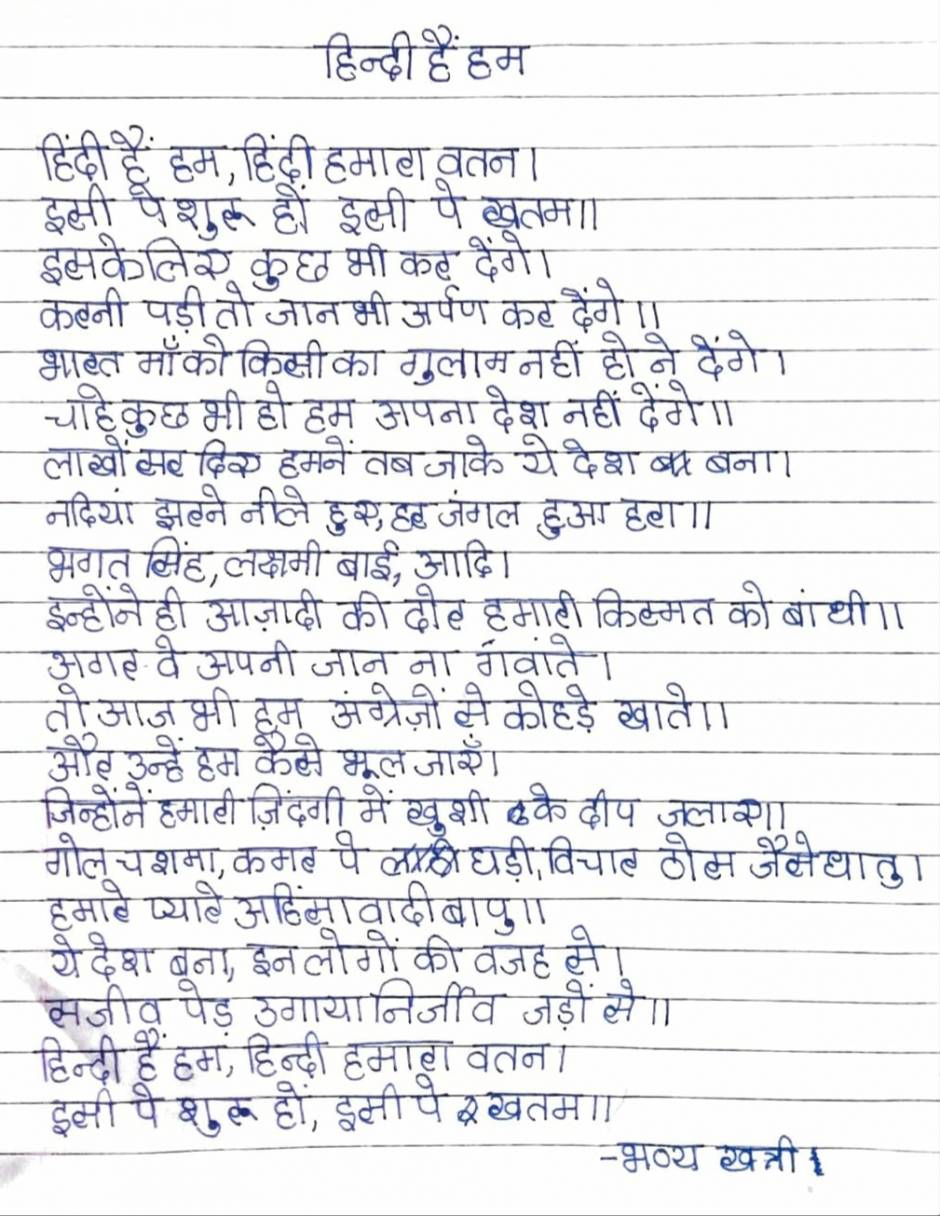 हिन्दी हैं हम
हिंदी हैं हम, हिंदी हमारा वतन।
इसी पे शुरू हों इसी पे खतम॥
इसके लिए कुछ भी कर देंगे।
करनी पड़ी तो जान भी अर्पण कर देंगे॥
भारत माँ को किसी का गुलाम नहीं होने देंगे।
चाहे कुछ भी हो हम अपना देश नहीं देंगे॥
लाखों सर दिए हमनें तब जाके ये देश बना।
नदियां झरने नीले हुए, हर जंगल हुआ हरा॥
भगत सिंह, लक्षमी बाई, आदि।
इन्होंने ही आज़ादी की दोर हमारी किस्मत को बांधी॥
अगर वे अपनी जान ना गँवांते।
तो आज भी हम अंग्रेज़ों से कोहड़े खाते॥
और उन्हें हम कैसे भूल जाएँ।
जिन्होंनें हमारी ज़िंदगी में खुशी के दीप जलाए॥
गोल चशमा, कमर पे घड़ी, विचार ठोस जैसे धातु।
हमारे प्यारे अहिंसावादी बापु॥
ये देश बना, इन लोगों की वजह से।
सजीव पेड़ उगाया निर्जीव जड़ों से॥
हिन्दी हैं हम, हिन्दी हमारा वतन।
इसी पे शुरू हों, इसी पे खतम॥
-भव्य खत्री।